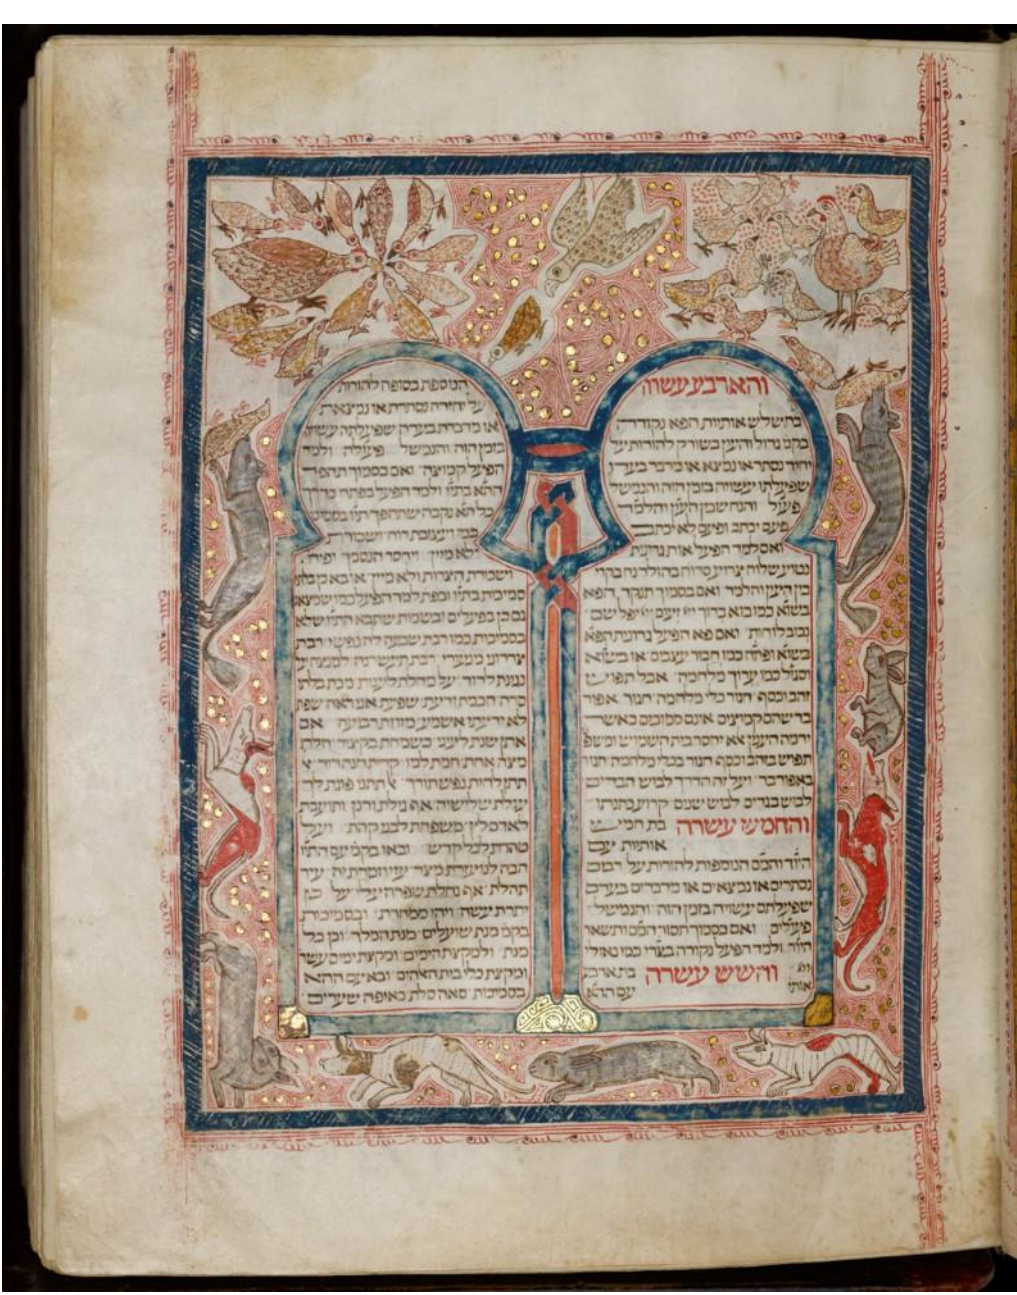 והארבע עשרה
בת שלש אותיות הפא נקודה
בקמץ גדול והעין בשורק להורות על
יחיד נסתר או נמצא או מדבר בעד
שפעלתו עשויה בזמן הזה והנמשל
פעול והנח שבין העין והלמד
פעם יכתב ופעם לא יכתב
ואם למד הפעל אות גרונית
נטוע שלוח צרוע סרוח בהולד נח בקרו
בין העין והלמד ואם בסמוך תנקד הפא
בשוא כמו בוא ברוך יי זעום יי יפל שם
נבוב לוחות ואם פא הפועל גרונית הפא
בשוא ופתח כמו חמור עצבים או בשוא
וסגול כמו עריך מלחמה אבל תפוש
זהב וכסף חגור כלי מלחמה חגור אפוד
בד שהם קמוצים אינם סמוכים כאשר
ידמה הענין לא יחסר בית השמוש ומשפ
תפוש בזהב וכסף חגור בכלי מלחמה חגור
באפוד בד ועל זה הדרך לבוש הבדים
לבוש בגדים לבוש שנים קרוע כתנתו
והחמש עשרה בת חמיש
אותיות עם
היוד והמם הנוספות להורות על רבים
נסתרים או נמצאים או מדברים בעדם
שפעלתם עשויה בזמן הזה והנמשל
פעולים ואם בסמוך תסור המם ותשאר
היוד ולמד הפעל נקודה בצרי כמו גאולי
יוי והשש עשרה בת ארבע
אותי עם ההא
הנוספת בסופה להורות
על יחידה נסתרת או נמצאת
או מדברת בעדה שפעלתה עשויה
בזמן הזה והנמשל פעולה ולמד
הפעל קמוצה ואם בסמוך תהפך
ההא בתיו ולמד הפעל בפתח כדרך
כל הא נקבה שתהפך תיו בסמיכ
כמו ועצובת רוח ושכורת
ולא מיין ויחסר הנסמך ופירו
ושכורת הצרות ולא מיין או בא מבלתי
סמיכות בתיו ובפתח למד הפעל כמו שנמצא
גם כן בפעלים ובשמות שתבא התיו שלא
בסמיכות כמו רבת שבעה לה נפשי רבת
צררוני מנעורי רבת תעשרנה לסמוח על
נגינת לדוד על מחלת לענות מכת בלתי
סרה חכמת ודעת שפעת אני ראה שפת
לא ידעתי אשמע מזוזת רביעה אם
אתן שנת לעיני בשמחת בקציר חלת
מצה אחת חמת למו קרית חנה דוד
תתן לחית נפש תורך תתנו פוגת לך
עגלת שלישיה אף גילת ורנן ותועבת
לאדם לץ משפחת לבני קהת ועל
טהרת לכל קדש ובאו בקמץ עם התיו
הבה לנו עזרת מצר עזי וזמרת יה עיר
תהלת אף נחלת שפרה עלי על כן
יתרת עשה ויהי ממחרת ובסמיכות
בקמץ מנת שועלים מנת המלך וכן כל
מנת ולמקצת הימים ומקצת ימים עשר
ומקצת כלי בית האלהים ובא עם ההא
בסמיכות סאה סלת כאיפה שערים